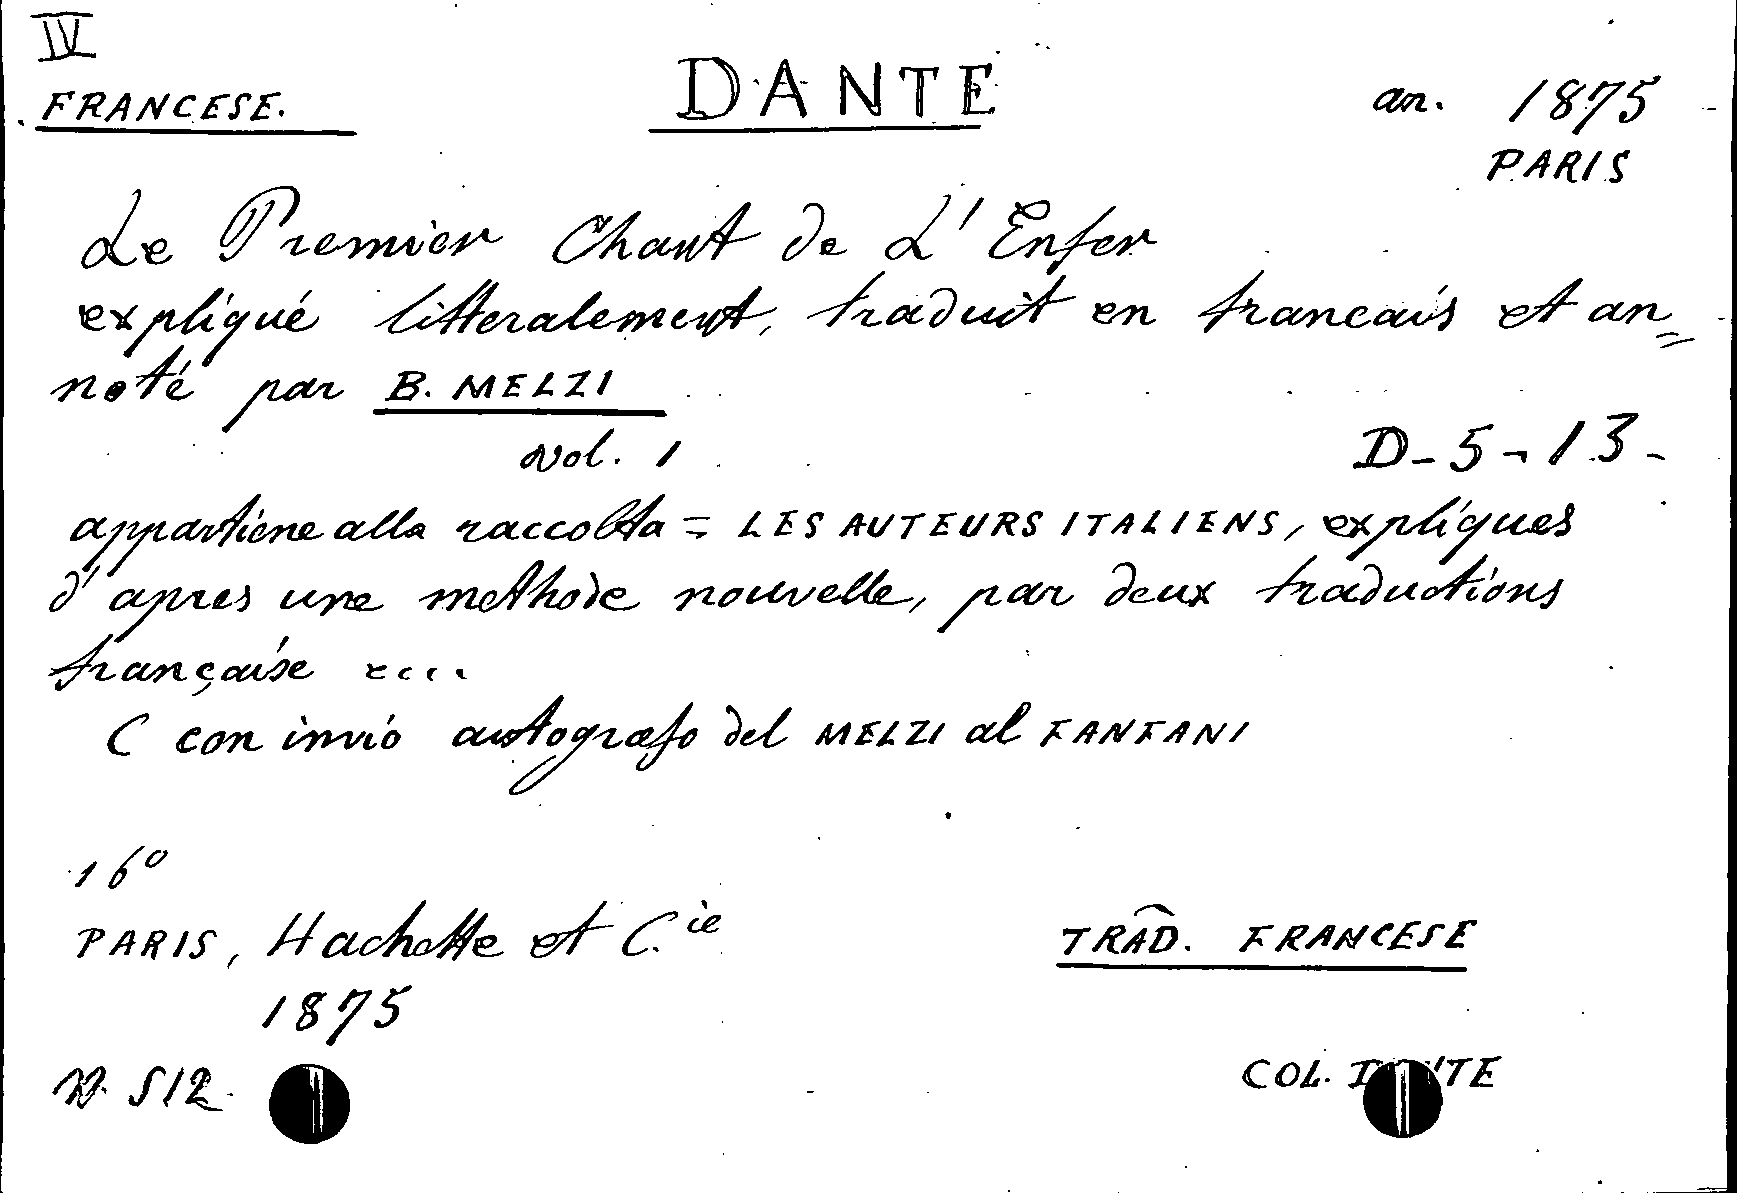 IV
FRANCESE.
DANTE
an. 1875
PARIS
Le Premier Chant de L'Enfer
expliqué litteralement, traduit en francais et an=
noté par B. MELZI
vol. 1
D-5-13-
appartiene alla raccolta = LES AUTEURS ITALIENS, expliques
d'apres une methode nouvelle, par deux traductions
française ....
( con invio autografo del MELZI al FANFANI
16º
PARIS, Hachette et C.ie
1875
TRAD. FRANCESE
N. 512.
COL.